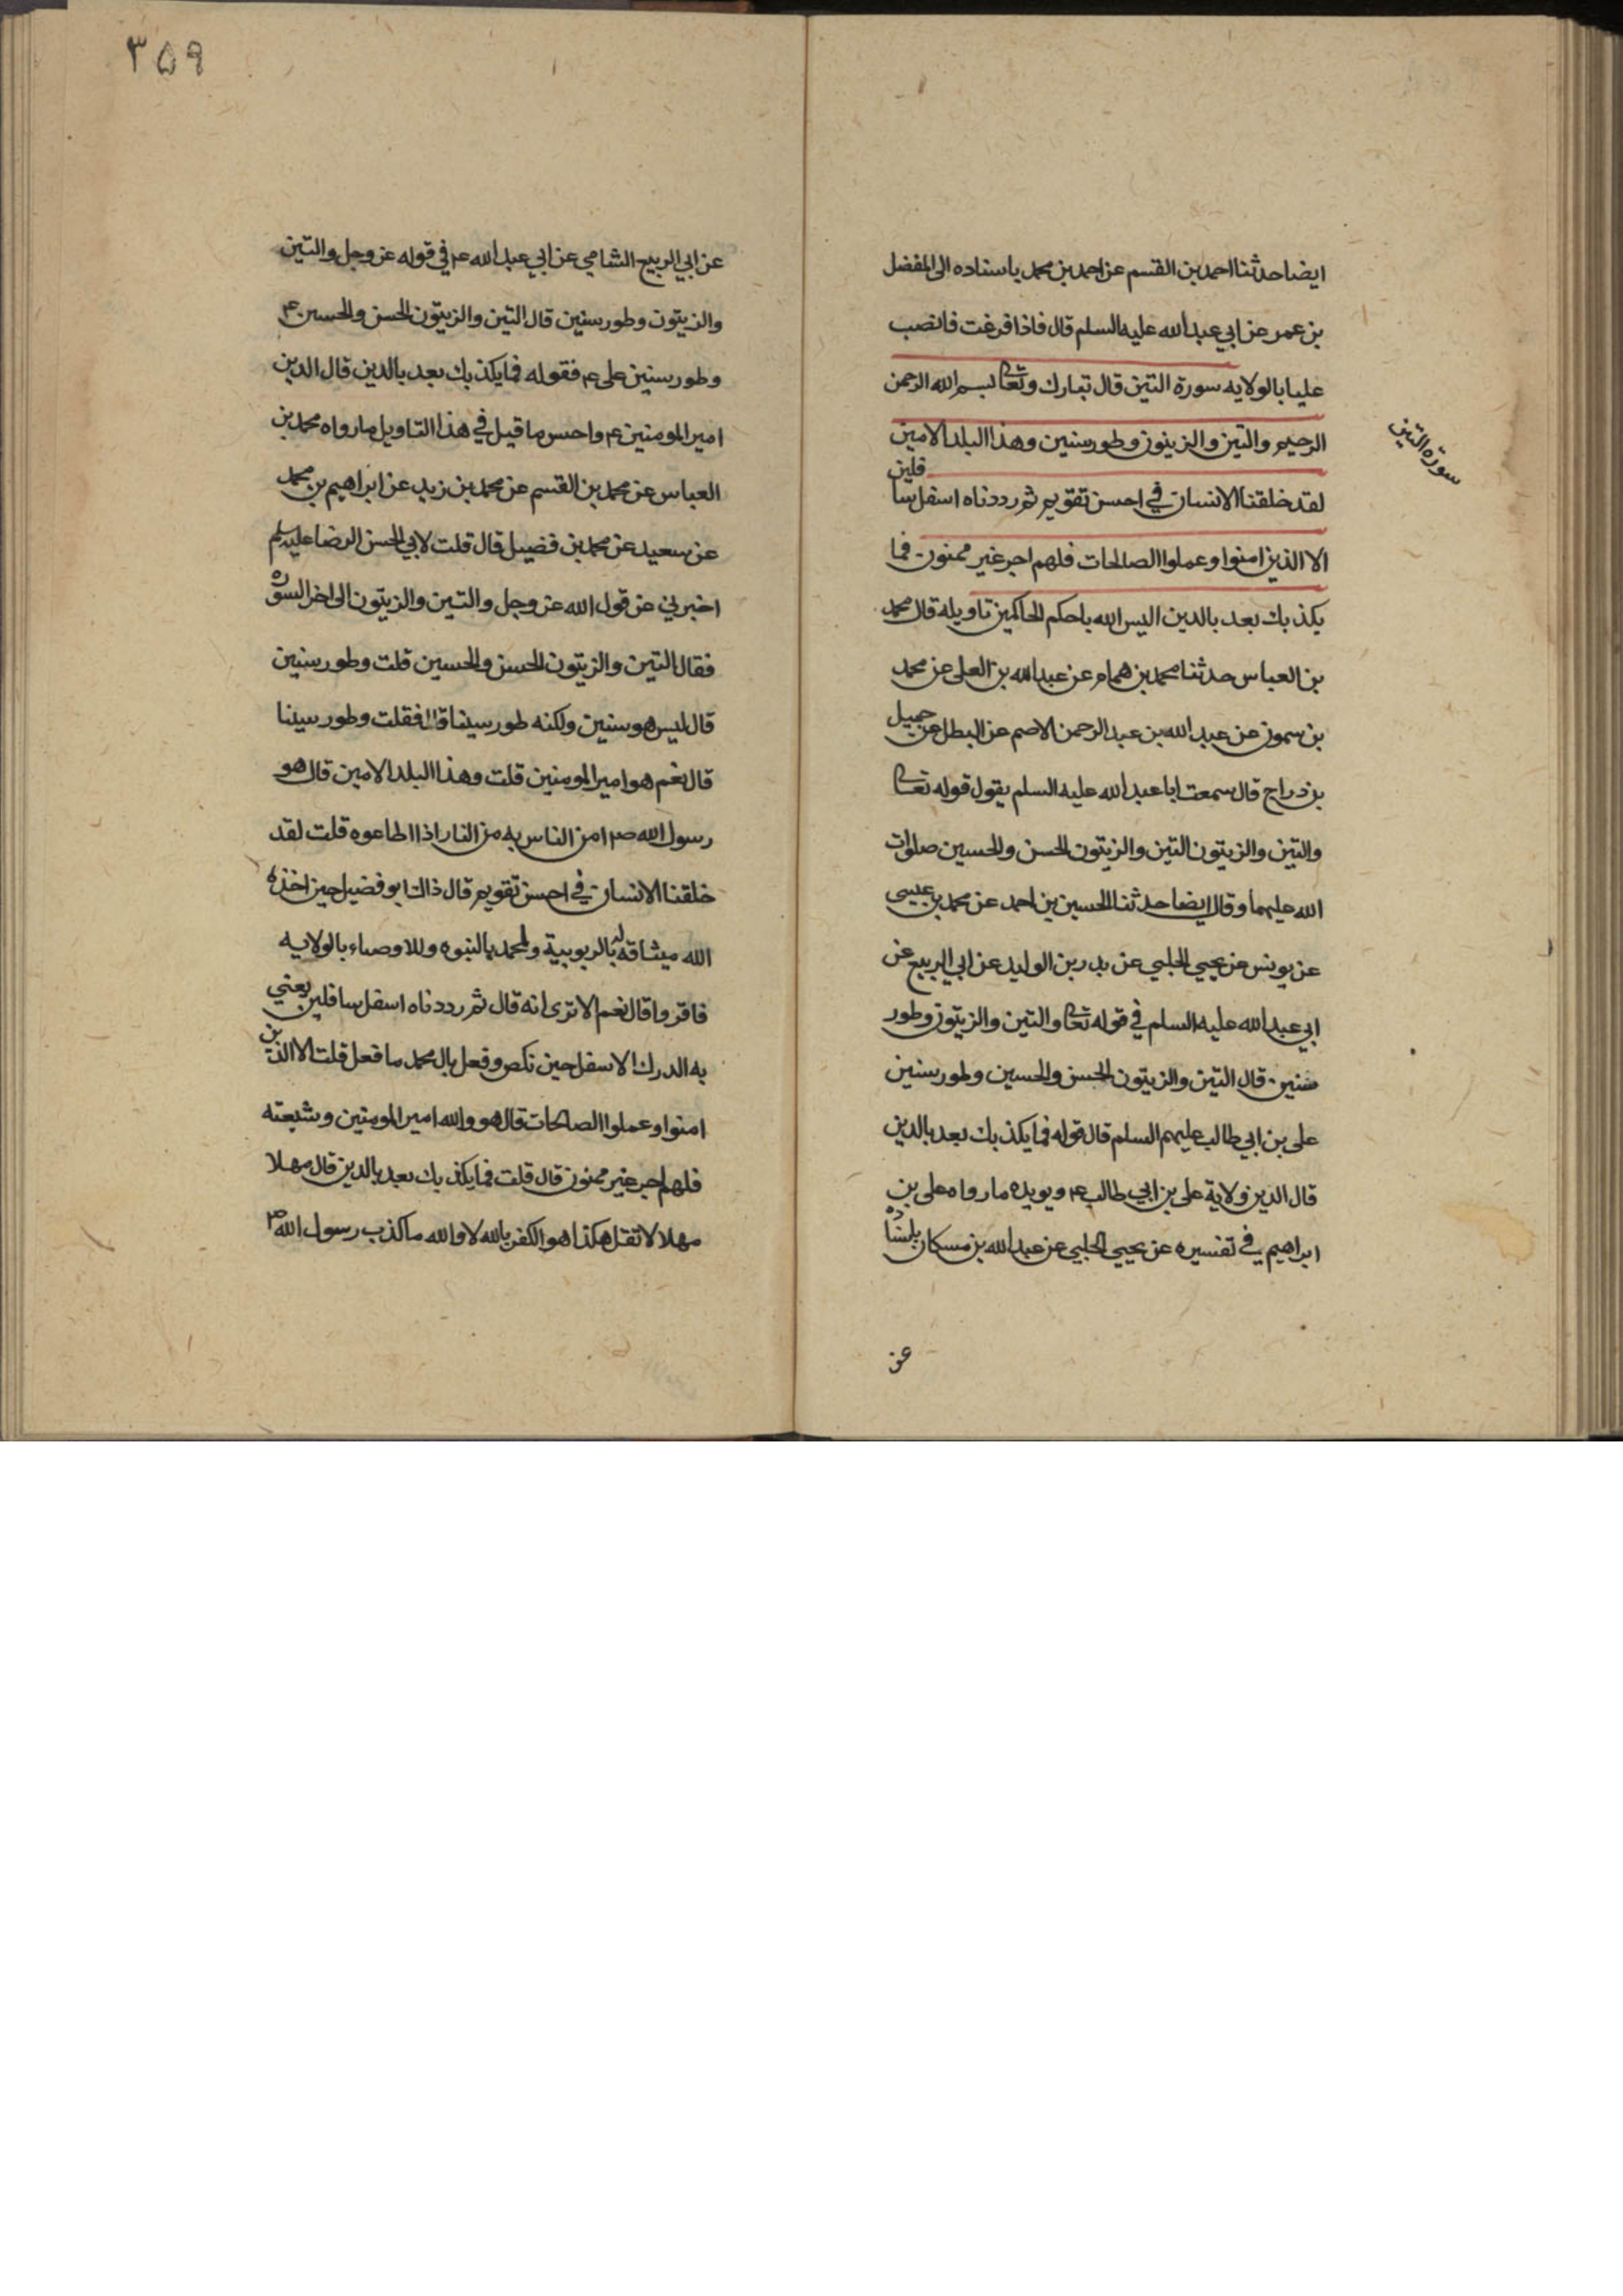 ايضا حدثنا احمد بن القسم عن احمد بن محمد باسناده الى المفضل
بن عمر عن ابي عبد الله عليه السلم قال فاذا فرغت فانصب
عليا بالولايه سورة التين قال تبارك وتعالى بسم الله الرحمن
الرحيم والتين والزيتون وطور سنين وهذا البلد الامين
سورة التين
لقد خلقنا الانسان في احسن تقويم ثم رددناه اسفل سافلين
الا الذين امنوا وعملوا الصالحات فلهم اجر غير ممنون فما
يكذبك بعد بالدين اليس الله باحكم الحاكمين تاويله قال محمد
بن العباس حدثنا محمد بن همام عن عبد الله بن العلى عن محمد
بن سمون عن عبد الله بن عبد الرحمن الاصم عن البطل عن جميل
بن دراج قال سمعت ابا عبد الله عليه السلم يقول قوله تعالى
والتين والزيتون التين والزيتون الحسن والحسين صلوات
الله عليهما وقال ايضا حدثنا الحسين بن احمد عن محمد بن عيسى
عن يونس عن يحيي الحلبي عن بدر بن الوليد عن ابي الربيع عن
ابي عبد الله عليه السلم في قوله تعالى والتين والزيتون وطور
سنين قال التين والزيتون الحسن والحسين وطور سنين
على بن ابي طالب عليهم السلم قال قوله فما يكذبك بعد بالدين
قال الدين ولاية على بن ابي طالب ع ويويده ما رواه على بن
ابراهيم في تفسيره عن يحيي الحلبي عن عبد الله بن مسكان باسناده
عن
٣٥٩
عن ابي الربيع الشامي عن ابي عبد الله ع في قوله عز وجل والتين
والزيتون وطور سنين قال التين والزيتون الحسن والحسين ع
وطور سنين على ع فقوله فما يكذبك بعد بالدين قال الدين
امير المومنين ع واحسن ما قيل في هذا التاويل ما رواه محمد بن
العباس عن محمد بن القسم عن محمد بن زيد عن ابراهيم بن محمد
عن سعيد عن محمد بن فضيل قال قلت لابي الحسن الرضا عليه السلم
اخبرني عن قول الله عز وجل والتين والزيتون الى اخر السوره
فقال التين والزيتون الحسن والحسين قلت وطور سنين
قال ليس هو سنين ولكنه طور سينا قال فقلت وطور سينا
قال نعم هو امير المومنين قلت وهذا البلد الامين قال هو
رسول الله ص امن الناس به من النار اذا اطاعوه قلت لقد
خلقنا الانسان في احسن تقويم قال ذاك ابو فضيل حين اخذ
الله ميثاقه له بالربوبية ولمحمد بالنبوه وللاوصياء بالولايه
فاقر وقال نعم الا ترى انه قال ثم رددناه اسفل سافلين يعني
به الدرك الاسفل حين نكص وفعل بال محمد ما فعل قلت الا الذين
امنوا وعملوا الصالحات قال هو والله امير المومنين وشيعته
فلهم اجر غير ممنون قال قلت فما يكذبك بعد بالدين قال مهلا
مهلا لا تقل هكذا هو الكفر بالله لا والله ما كذب رسول الله ص